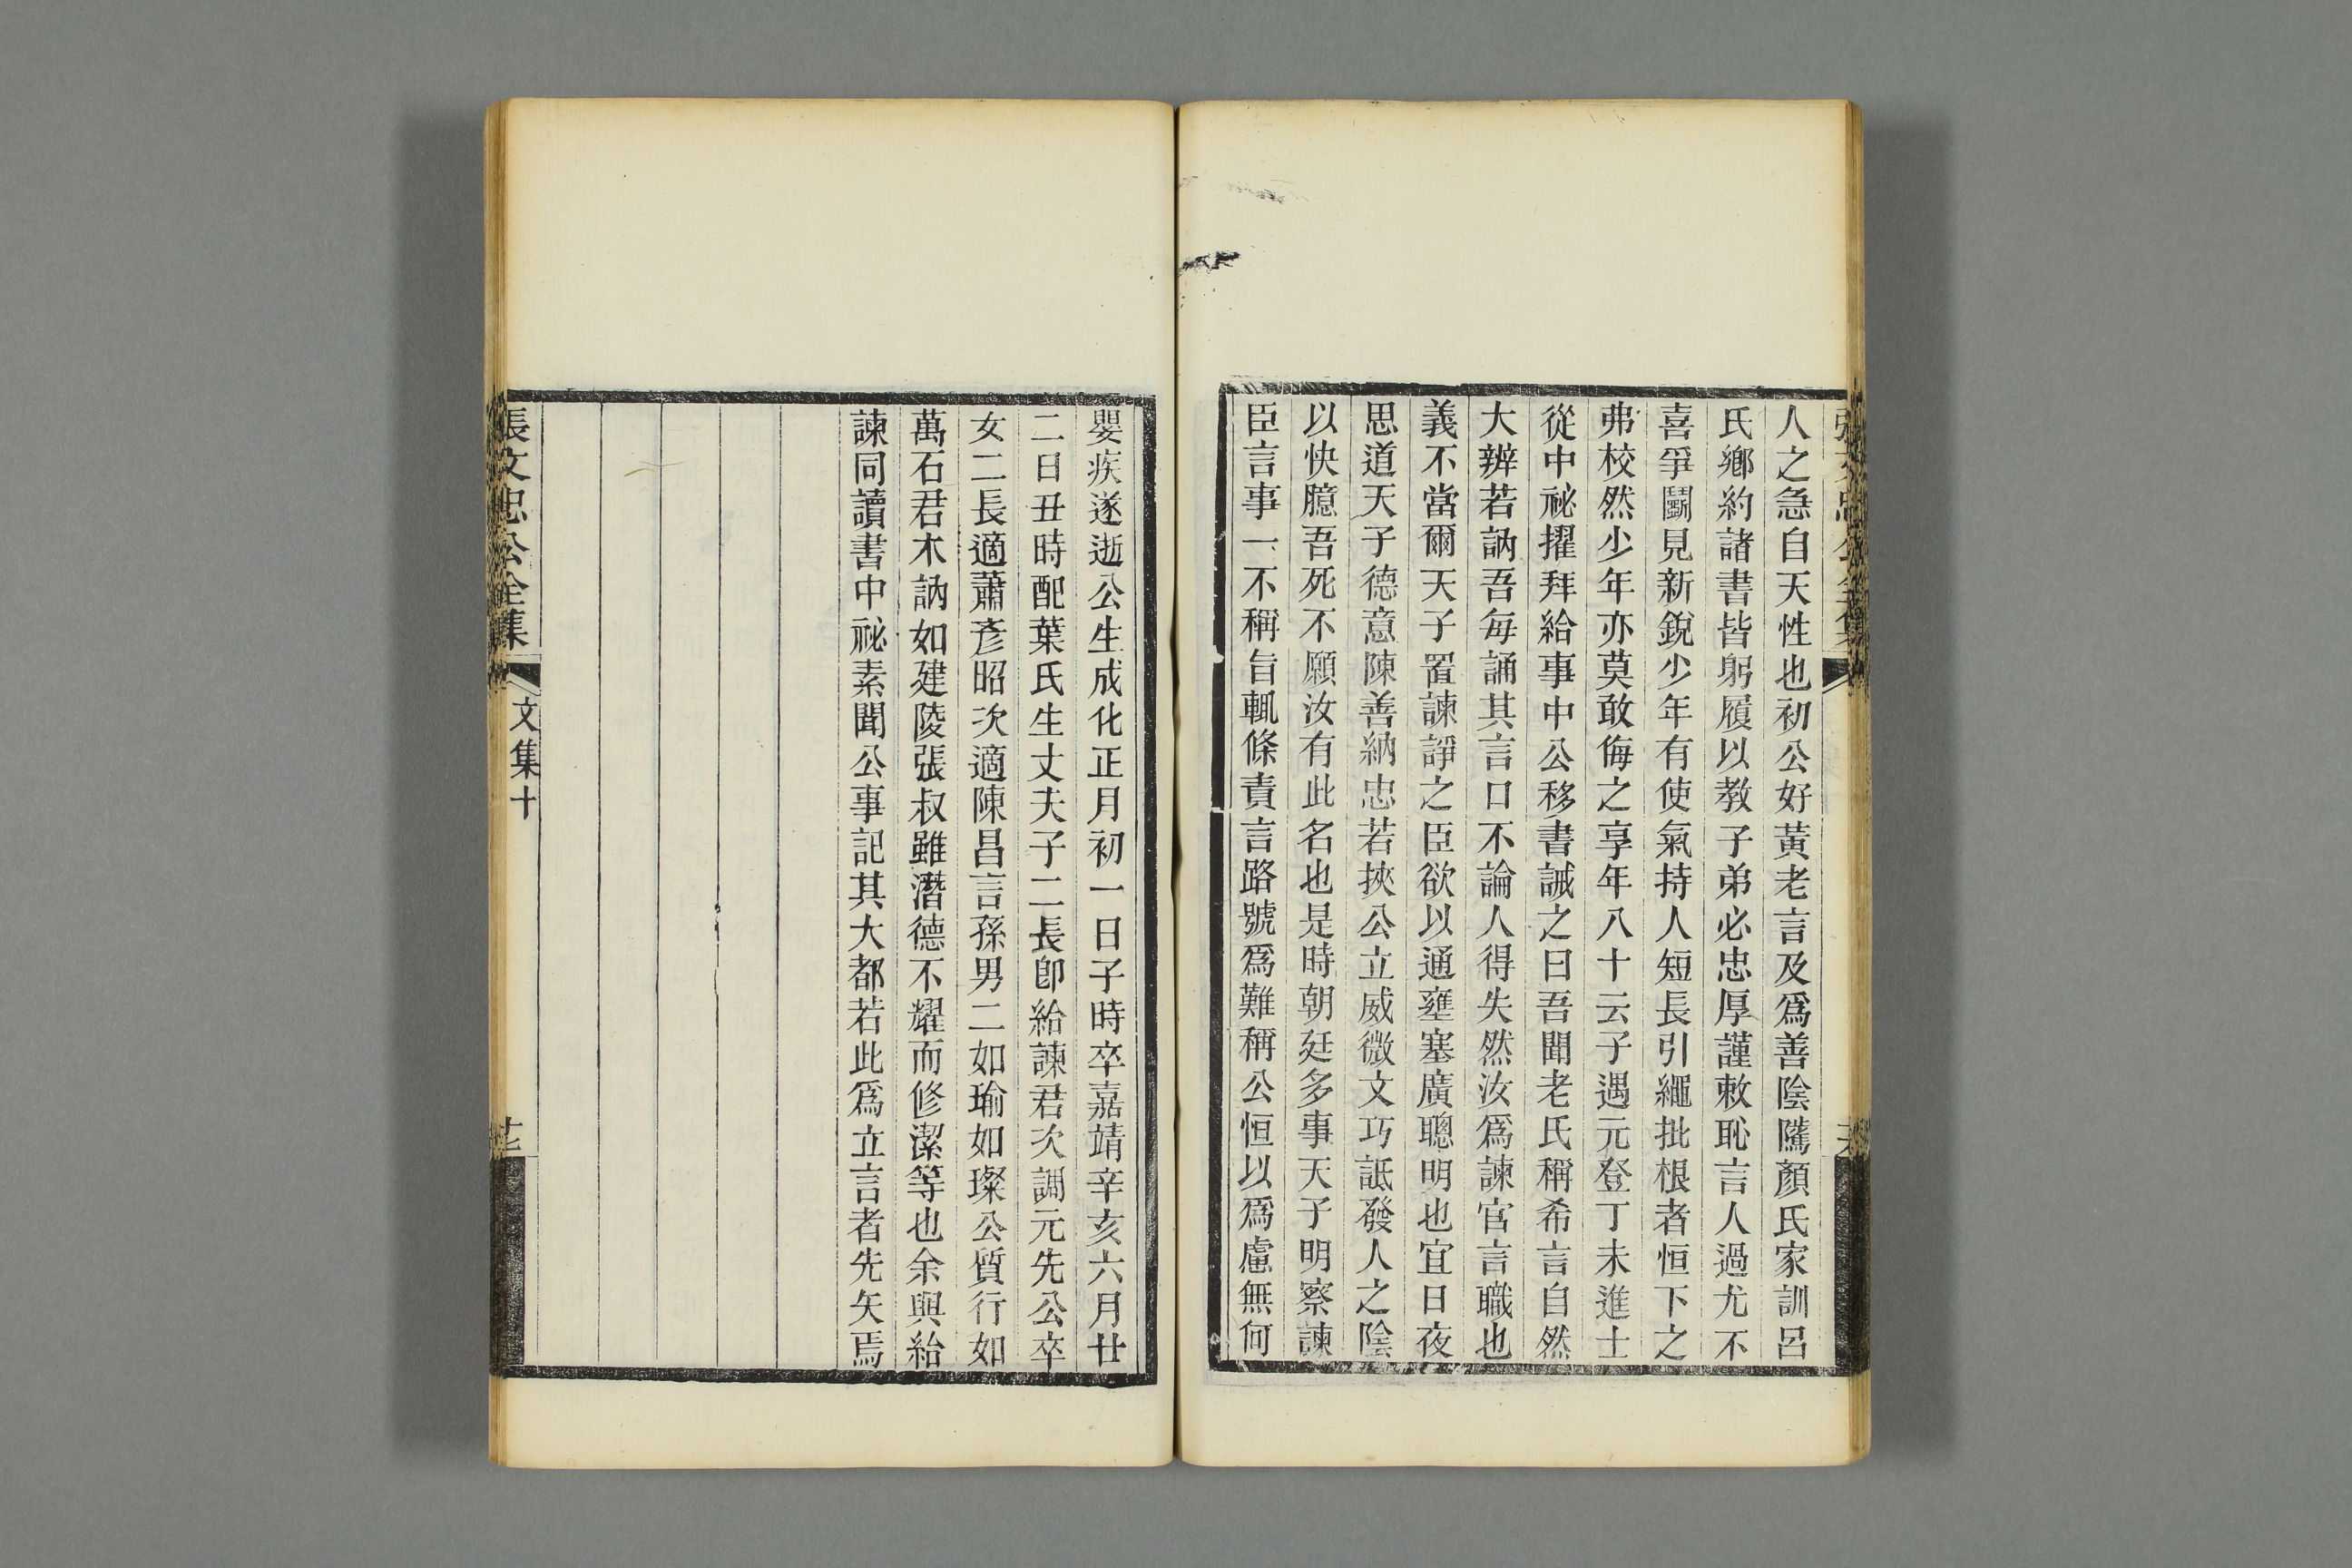 人之急自天性也初公好黃老言及爲善陰隲顏氏家訓呂
氏鄉約諸書皆躬履以教子弟必忠厚謹敕恥言人過尤不
喜爭鬭見新銳少年有使氣持人短長引繩批根者恒下之
弗校然少年亦莫敢侮之享年八十云子遇元登丁未進士
從中祕擢拜給事中公移書誡之曰吾聞老氏稱希言自然
大辨若訥吾每誦其言口不論人得失然汝爲諫官言職也
義不當爾天子置諫諍之臣欲以通壅塞廣聰明也宜日夜
思道天子德意陳善納忠若挾公立威微文巧詆發人之陰
以快臆吾死不願汝有此名也是時朝廷多事天子明察諫
臣言事一不稱旨輒條責言路號爲難稱公恒以爲慮無何
嬰疾遂逝公生成化正月初一日子時卒嘉靖辛亥六月廿
二日丑時配葉氏生丈夫子二長卽給諫君次調元先公卒
女二長適蕭彥昭次適陳昌言孫男二如瑜如璨公質行如
萬石君木訥如建陵張叔雖潛德不耀而修潔等也余與給
諫同讀書中祕素聞公事記其大都若此爲立言者先矢焉
張文忠公全集
文集十